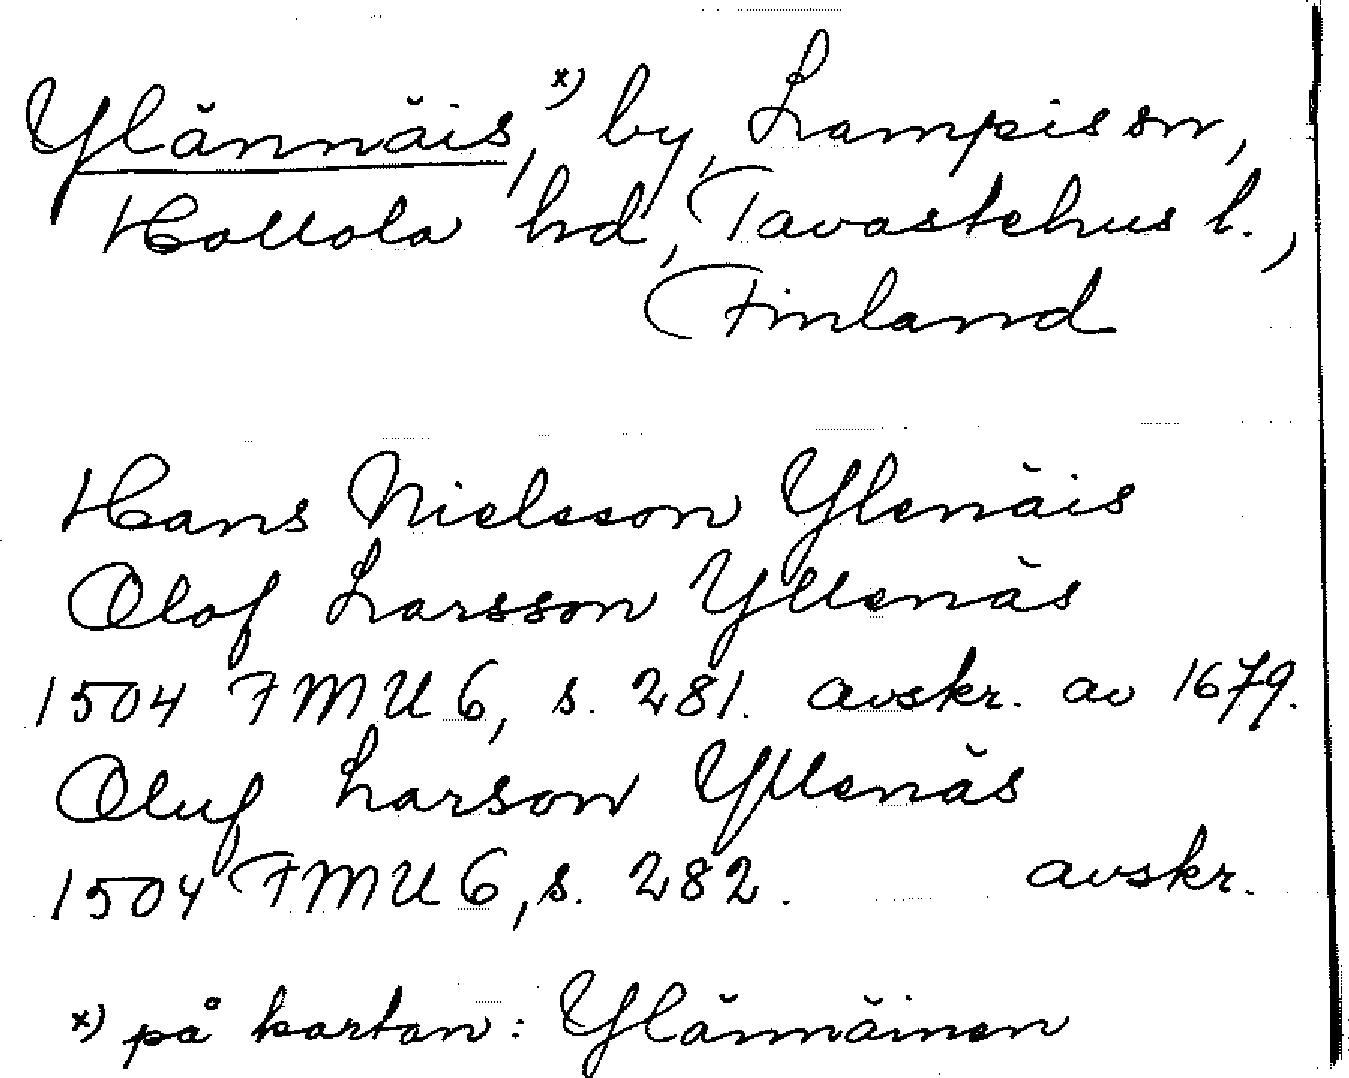 Ylännäis, x) by, Lampis sn,
Hollola hd, Tavastehus l.,
Finland
Hans Nielsson Ylenäis
Olof Larsson Yllenäs
1504 FMU 6, s. 281. avskr. av 1679.
Oluf Larson Yllenäs
1504 FMU 6, s. 282. avskr.
x) på kartan: Ylännäinen